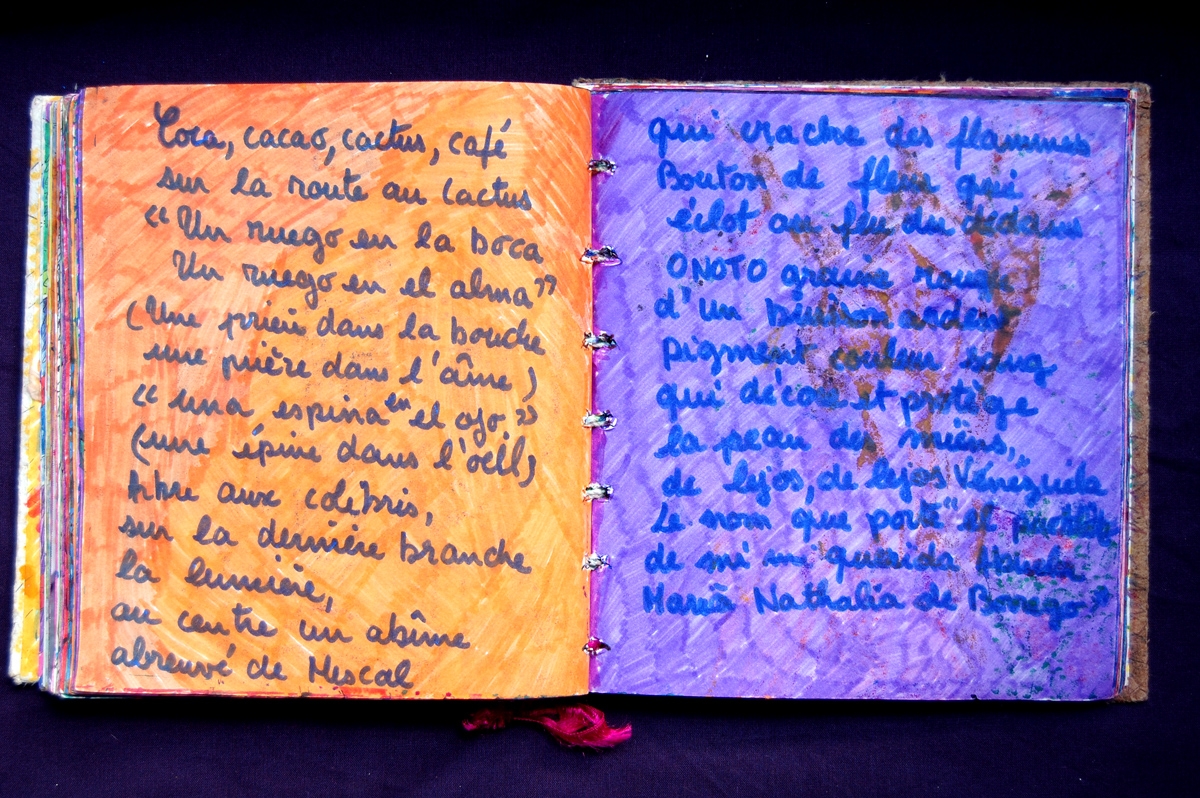 Coca, cacao, cactus, café
sur la route au Cactus
"Un ruego en la boca
Un ruego en el alma"
(Une prière dans la bouche
une prière dans l'âme)
"una espina en el ojo"
(une épine dans l'oeil)
Arbre aux colibris,
sur la dernière branche
la lumière,
au centre un abîme
abreuvé de Mescal
qui crache des flammes
Bouton de fleur qui
éclot au feu du dedans
ONOTO graine rouge
d'un buisson ardent
pigment couleur sang
qui décore et protège
la peau des miens,
de lejos, de lejos Vénézuéla
Le nom que porte "el
de mi mi querida Abuela
Maria Nathalia de Borrego"